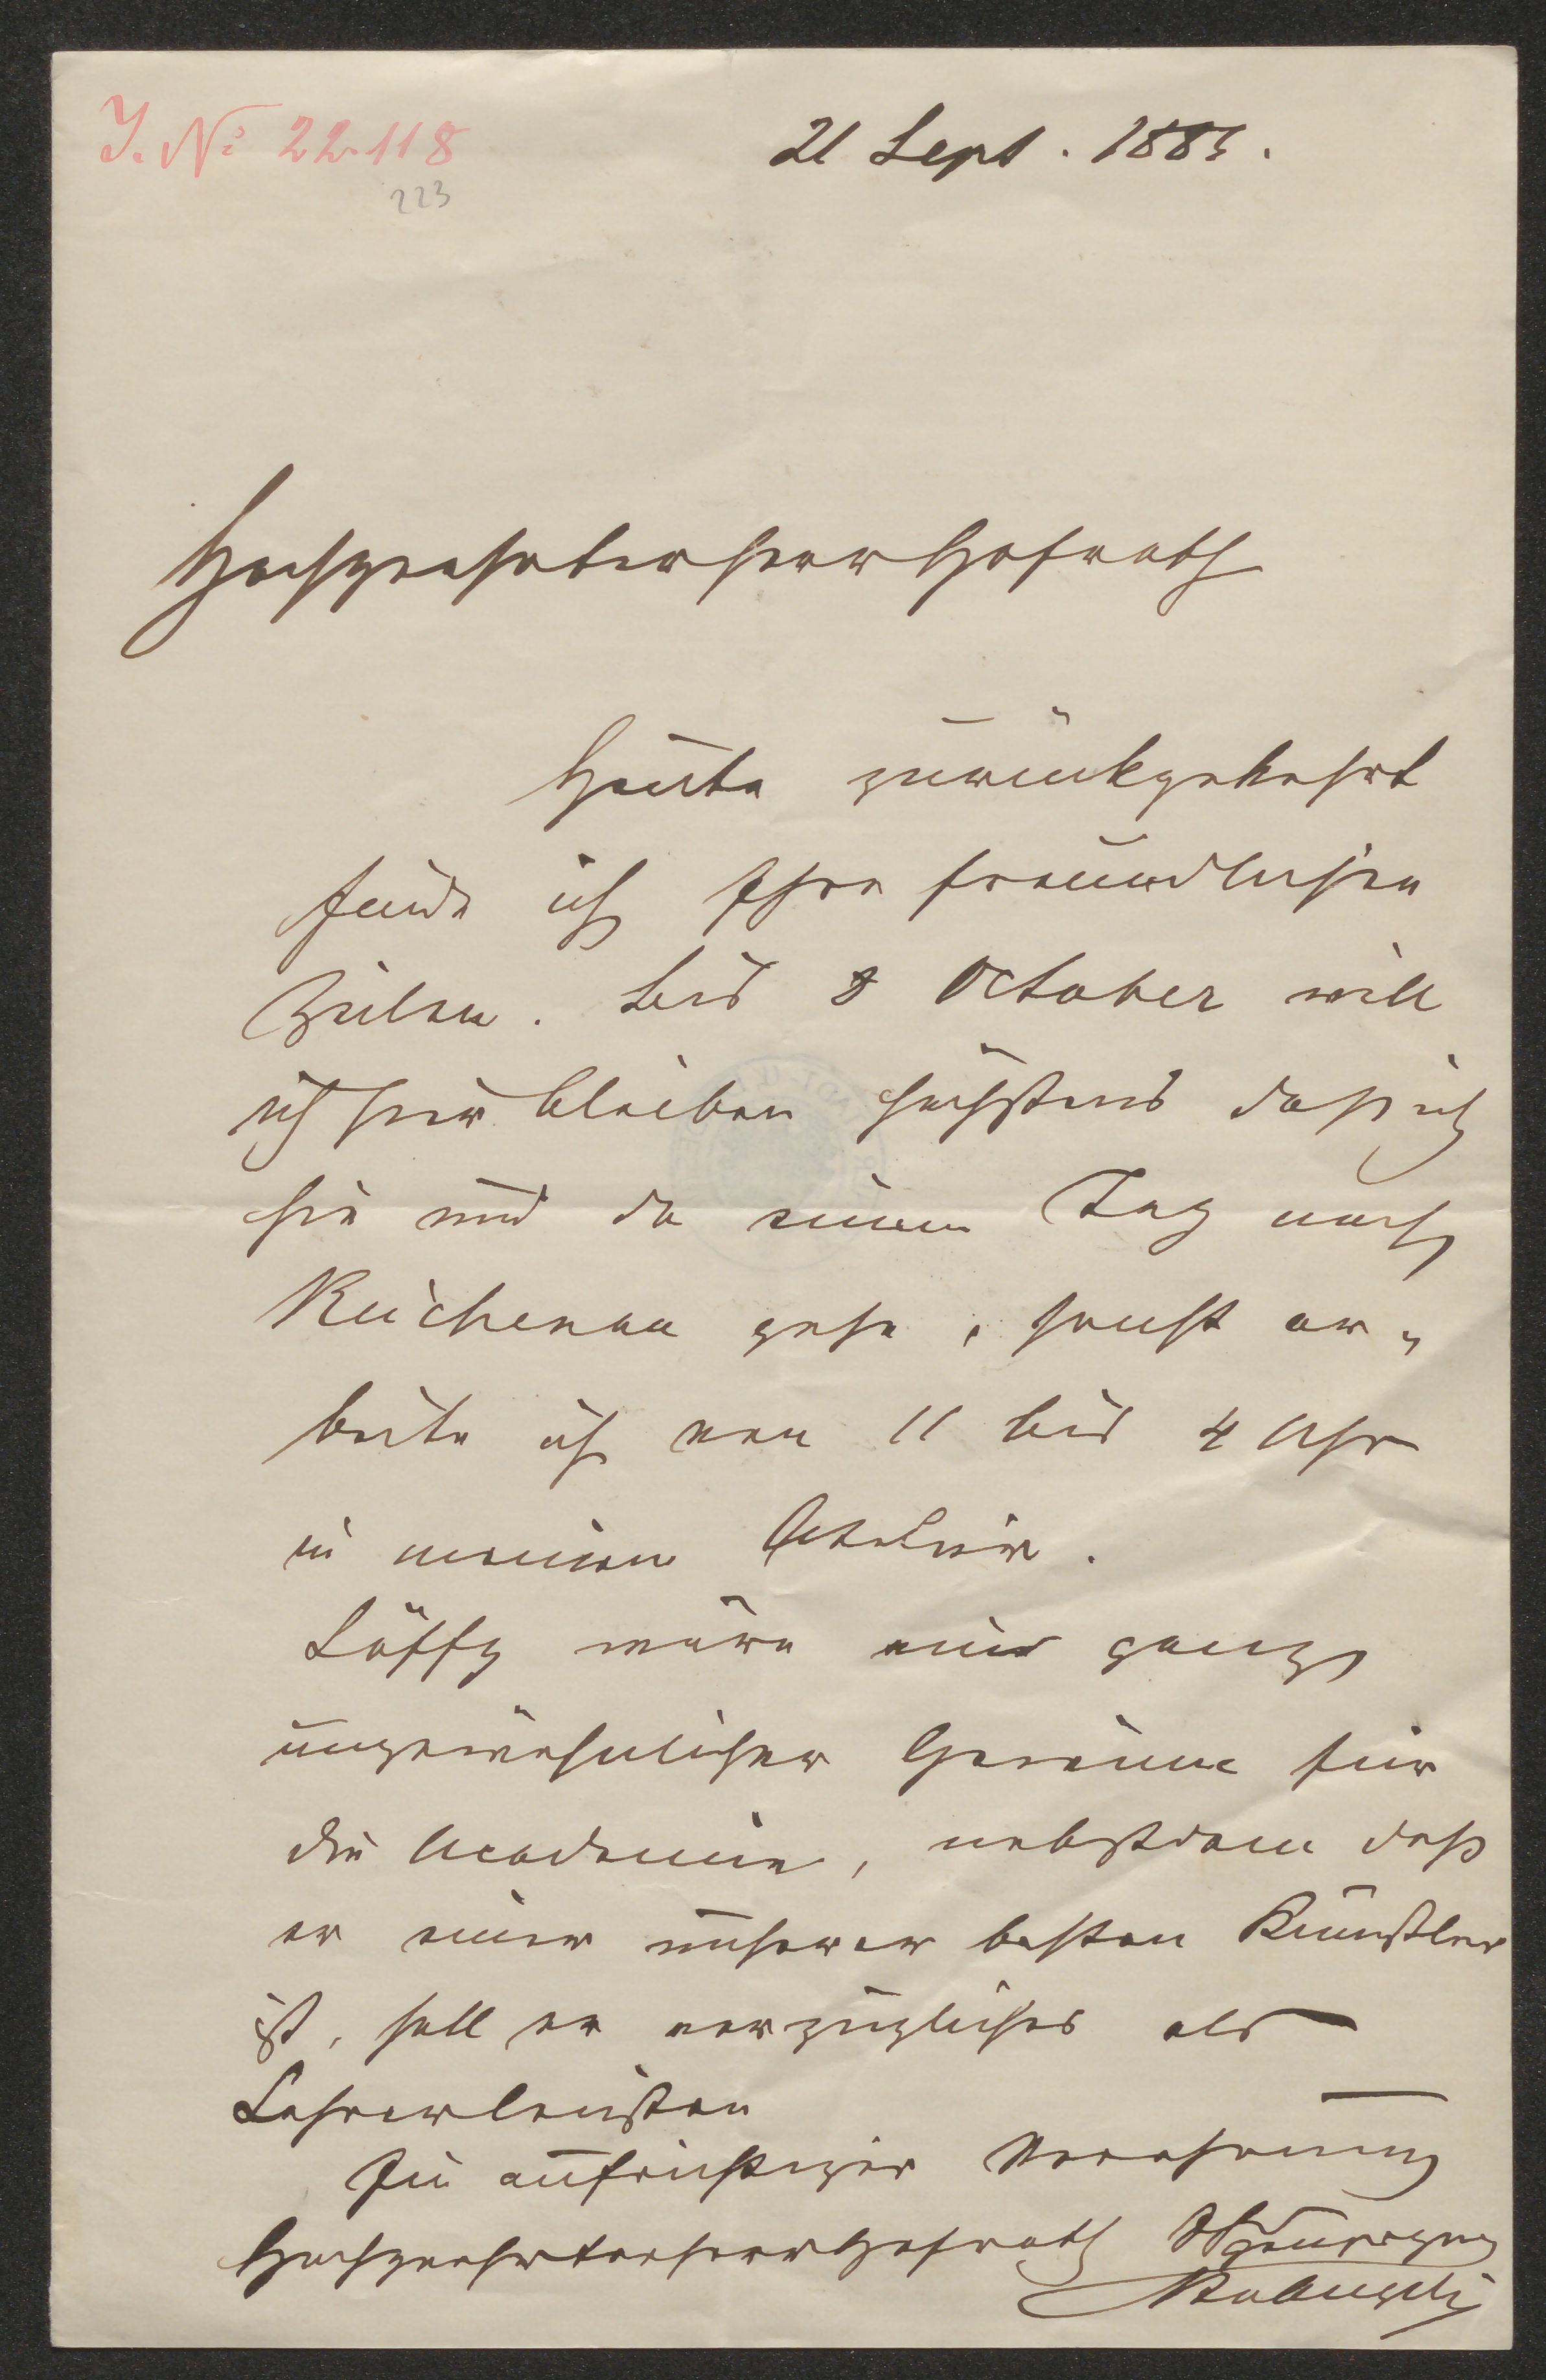 I. N: 22.118
223
21 Sept. 1883.
Hochgeehrter Herr Hofrath
Heute zurückgekehrt
finde ich Ihre freundlichen
Zeilen. Bis 8 October will
ich hier bleiben höchstens daß ich
hie und da einen Tag nach
Reichenau gehe, sonst ar-
beite ich von 11 bis 4 Uhr
in meinem Atelier.
Löffz wäre ein ganz
ungewöhnlicher Gewinn für
die Academie, nebstdem daß
er einer unserer besten Künstler
ist, soll er vorzügliches als
Lehrer leisten
In aufrichtiger Verehrung
Hochgeehrter Herr Hofrath Ihr